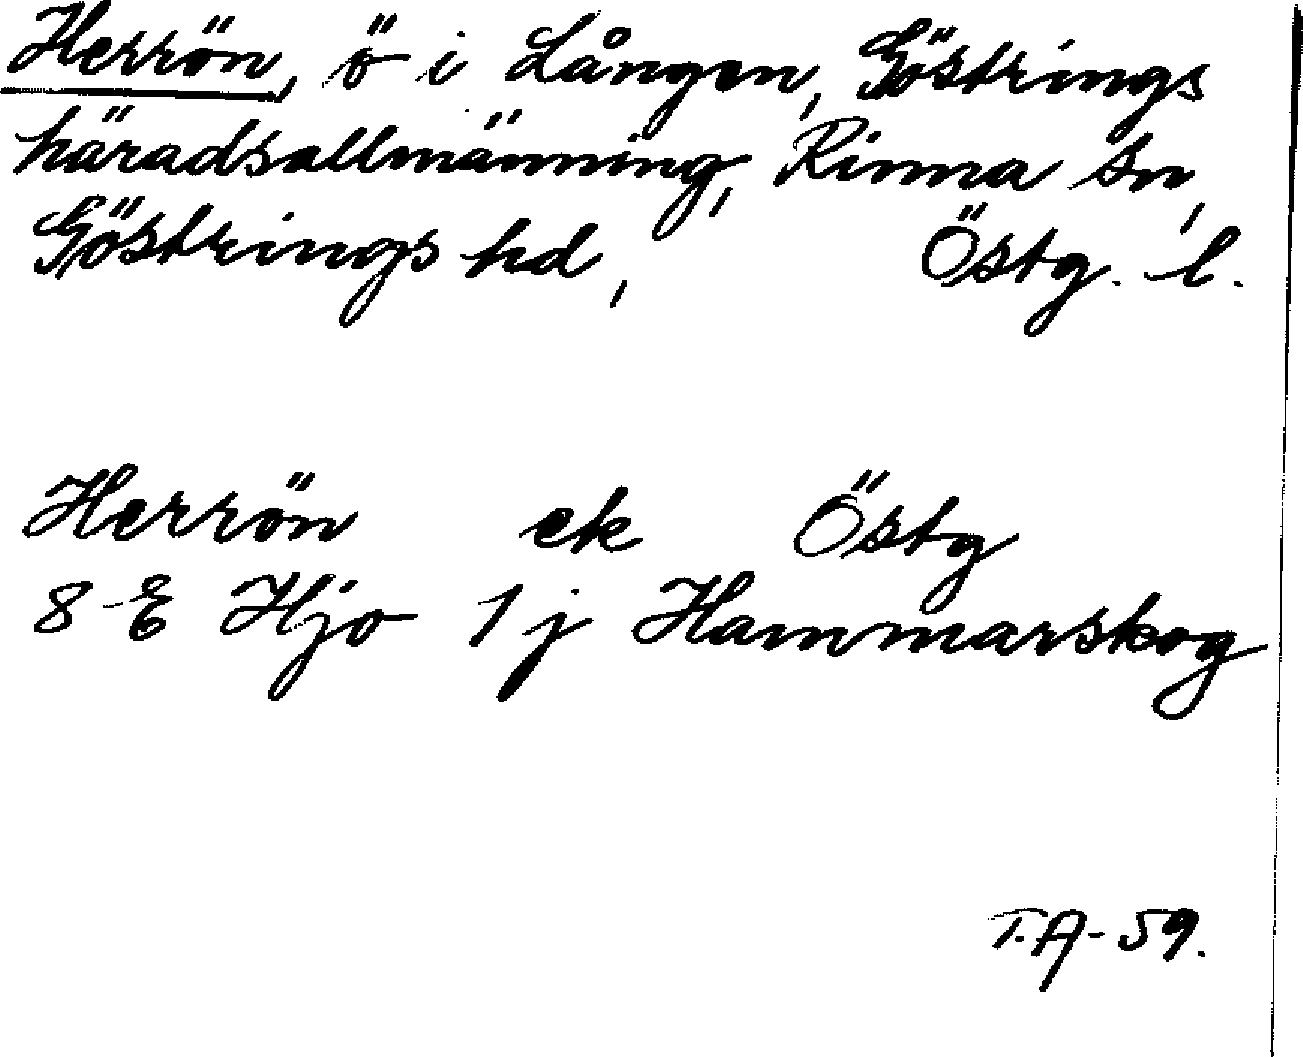 Herrön, ö i Lången, Göstrings
häradsallmänning, Rinna sn,
Göstrings hd, Östg. l.
Herrön ek Östg
8 E Hjo 1 j Hammarskog
T.A-59.